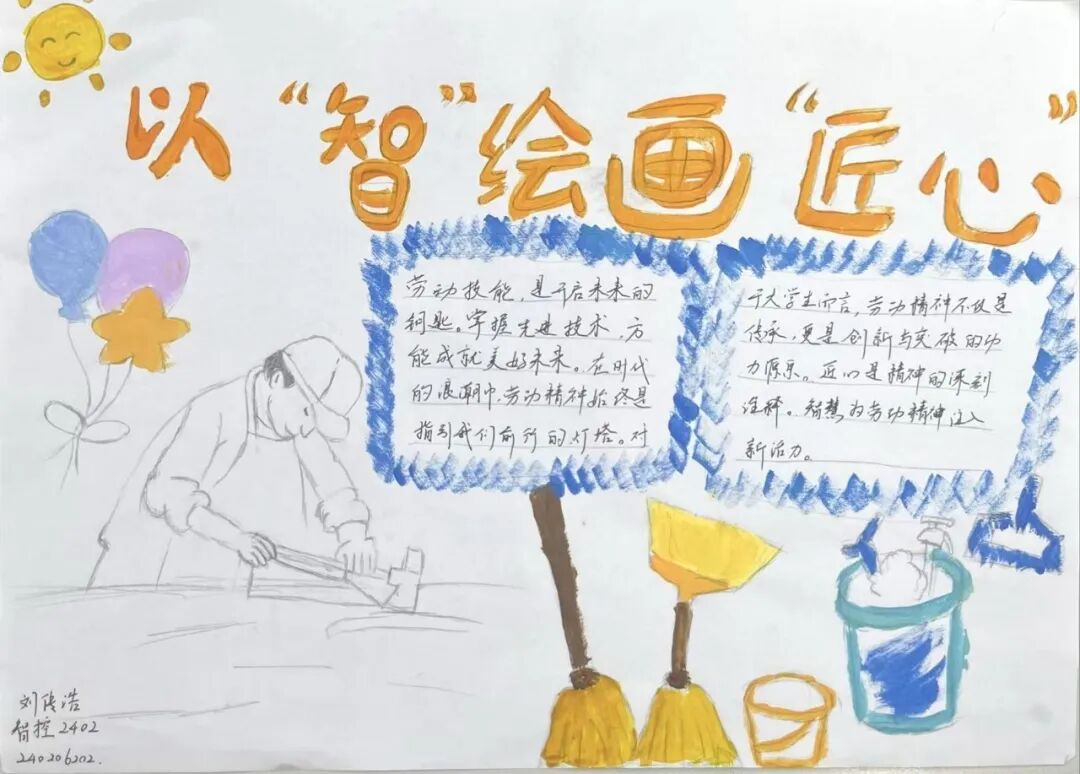 以“智”绘画“匠心”
劳动技能，是开启未来的
钥匙。掌握先进技术，方
能成就美好未来。在时代
的浪潮中，劳动精神始终是
指引我们前行的灯塔。对
于大学生而言，劳动精神不仅是
传承，更是创新与突破的动
力源泉。匠心是精神的深刻
诠释。智慧为劳动精神注入
新活力。
刘陈浩
智控2402
240206202.